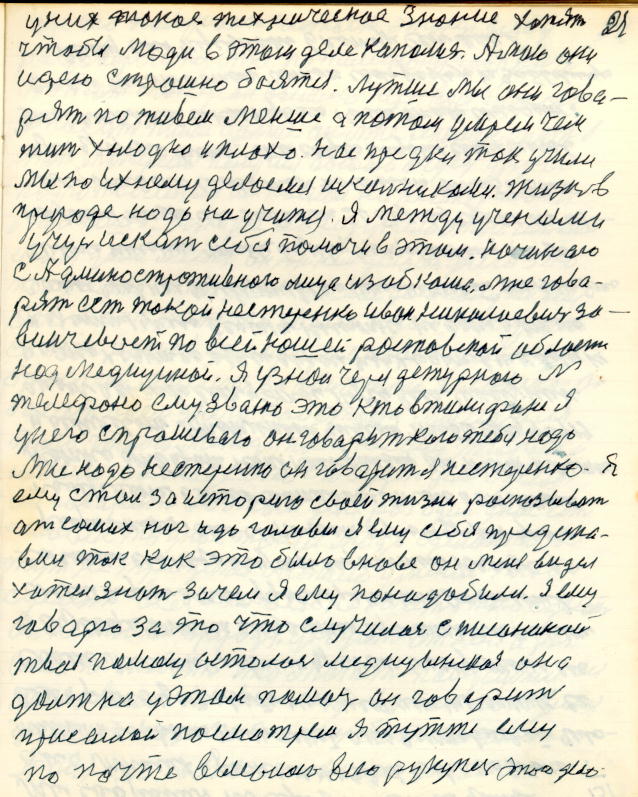 уних такое техническое Знание хотят 21
чтобы люди в этом деле капались. А мою они
идею страшно боятся. лутше мы они гова-
рят поживем менше а потом умрем чем
жит холодно и плохо. нас предки так учили
мы по ихнему делаемся школниками. Жизнь в
природе надо научится. Я между учеными
учусь искат себя помочи в этом. начинаю
с Админостротивного лица из обкома. мне гова-
рят ест такой нестеренко иван николаевич за-
ведует по всей нашей ростовской области
над медициной. Я узнал через дежурного №
телефона ему званю это кто втилифане я
унего спрашеваю он говарит каго тебе надо
мне надо нестеренко он говарит я нестеренко. Я
ему стал за историю своей жизни расказыват
от самих ног идо головы я ему себя предста-
вил так как это было внове он меня видел
хател знат зачем я ему понадобился. Я ему
говарю за то что случилося с
твоя помощ осталося медицинская она
должна уэтом помоч он говарит
присылай посмотрем я тутже ему
по почте выслал его рукупис этого дела